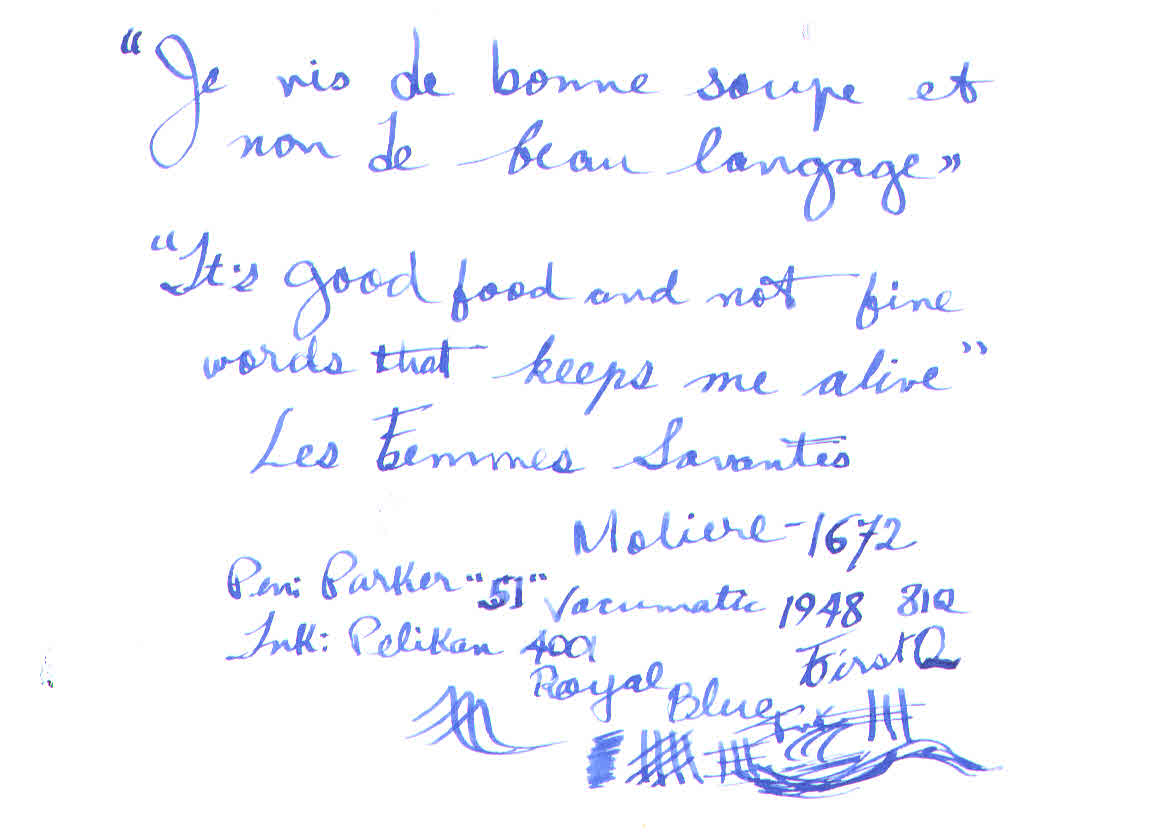 “Je vis de bonne soupe et
non de beau langage”
“It's good food and not fine
words that keeps me alive”
Les Femmes Savantes
Moliere - 1672
Pen: Parker "51" Vacumatic 1948 81Q
Ink: Pelikan 4001 First Q
Royal Blue